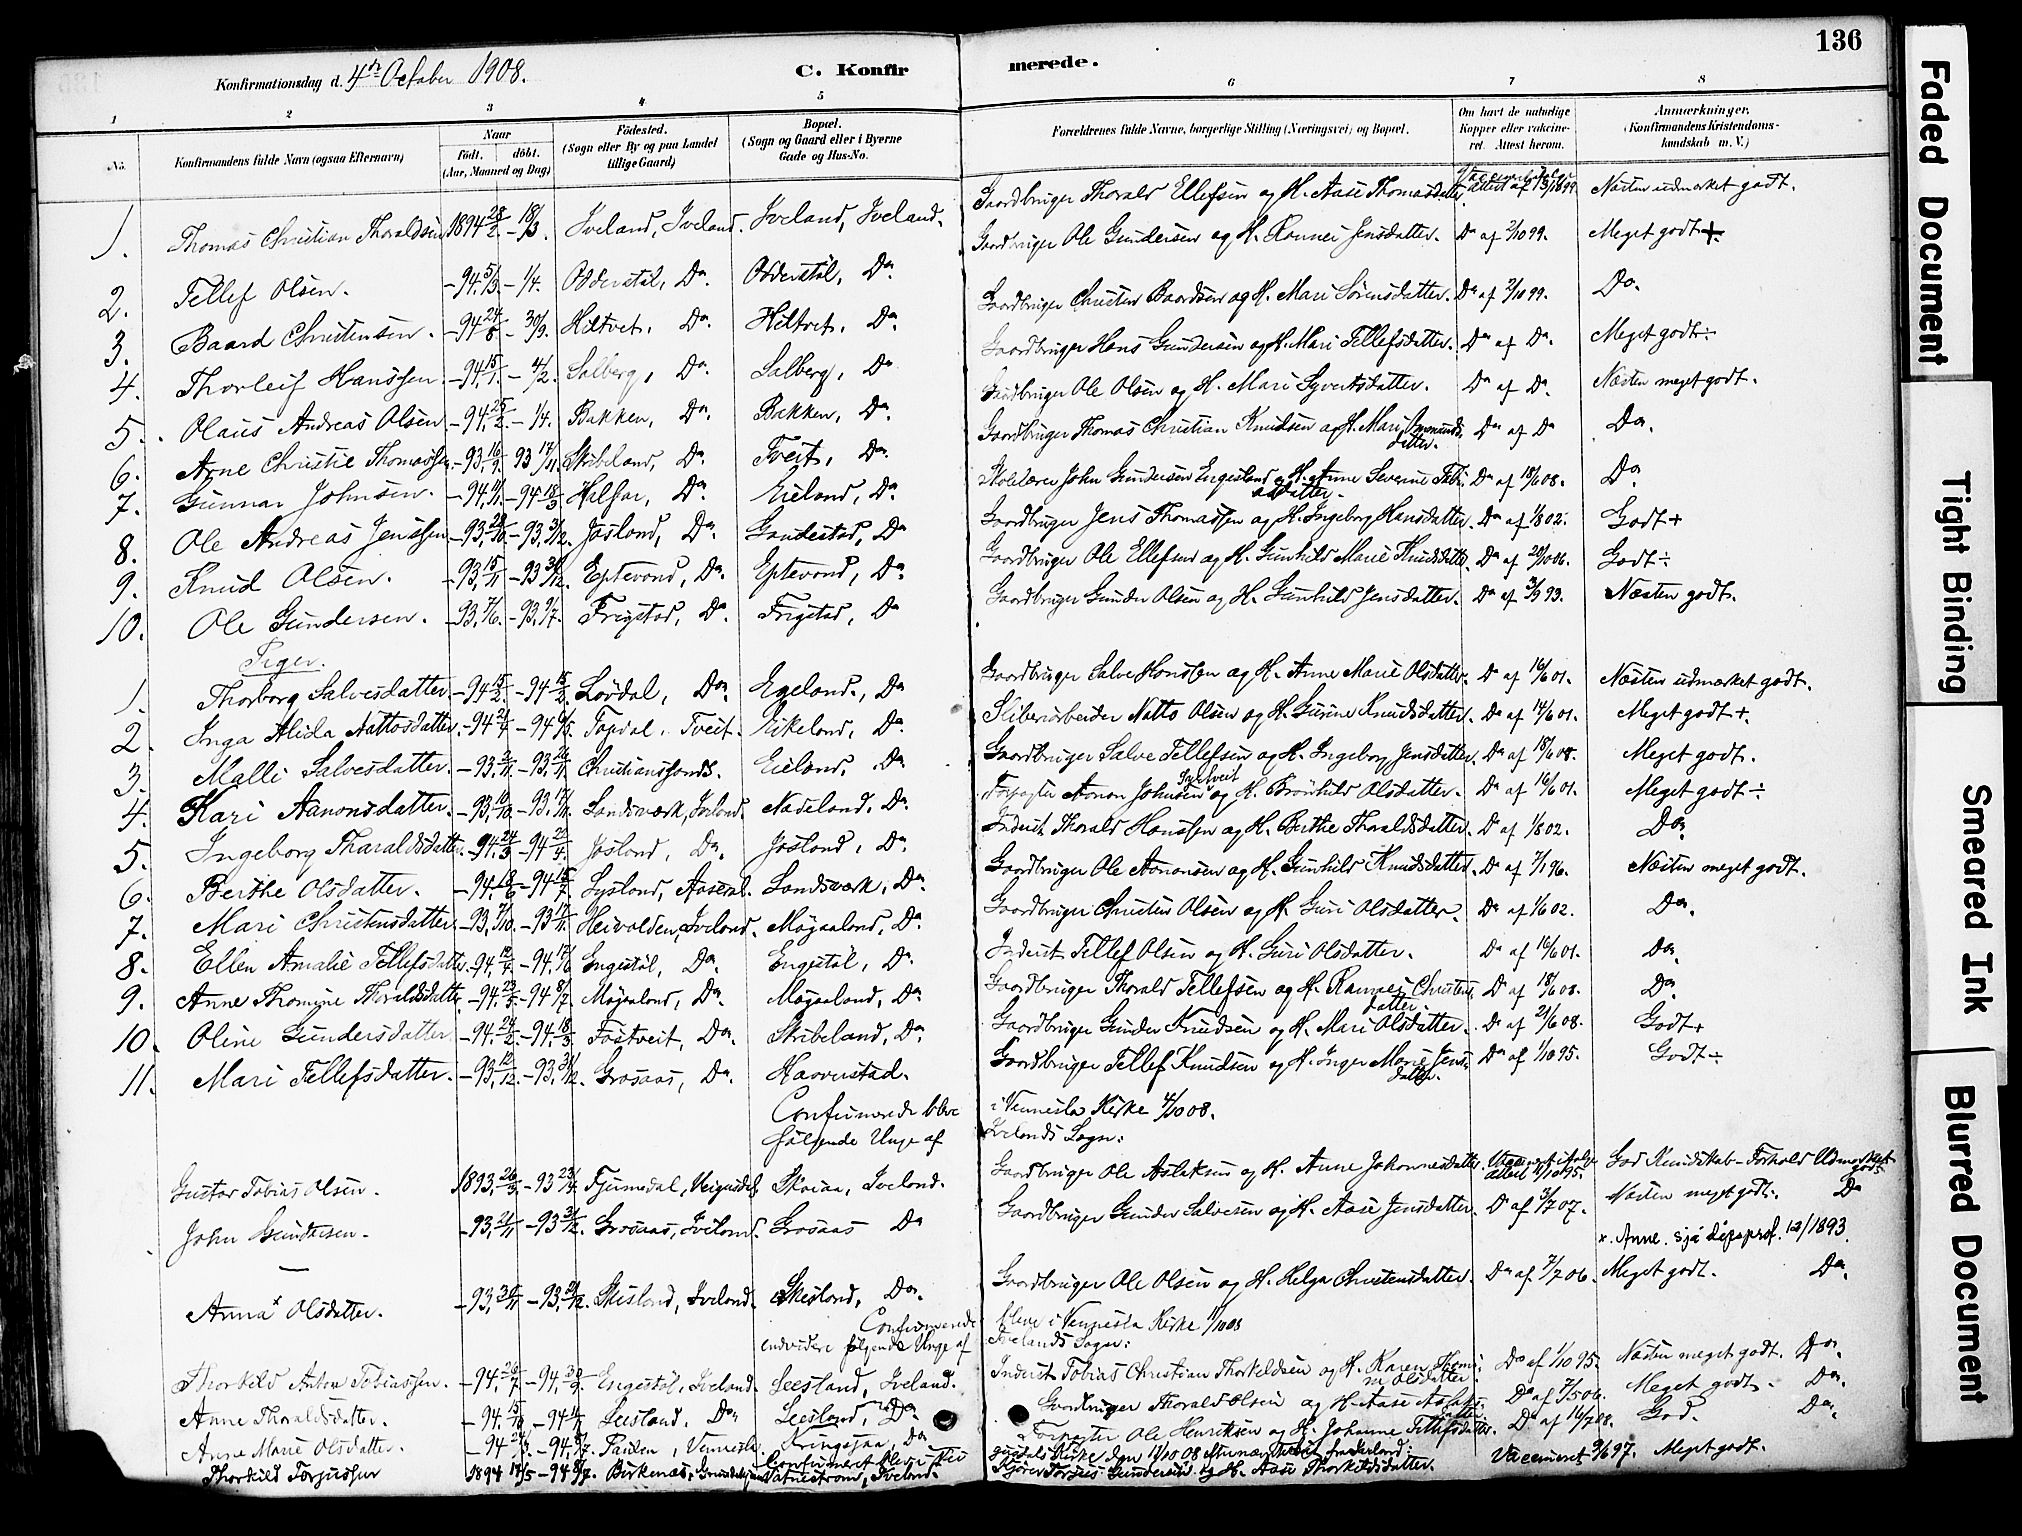 136
Konfirmationsdag d. 4de October 1908.
C. Konfirmerede.
1 2 3 4 5 6 7 8
No.
Konfirmandens fulde Navn (ogsaa Efternavn)
Naar
født. døbt.
(Aar, Maaned og Dag)
Fødested.
(Sogn eller By og paa Landet
tillige Gaard)
Bopæl.
(Sogn og Gaard eller i Byerne
Gade og Hus-No.
Forældrenes fulde Navne, borgerlige Stilling (Næringsvei) og Bopæl.
Om havt de naturlige
Kopper eller vakcine-
ret. Attest herom.
Anmærkninger.
(Konfirmandens Kristendoms-
kundskab m. V.)
1. Thomas Christian Thoraldsen 1894 28/2 - 18/3. Iveland, Iveland. Iveland, Iveland. Gaardbruger Thorald Ellefsen og H. Aase Thomasdatter. Næsten udmærket godt.
2. Tellef Olsen. -94. 5/3 - 1/4. Odderstøl, Do. Odderstøl, Do. Gaardbruger Ole Gundersen og H. Rannei Jensdatter. Do af 2/10 99. Meget godt +.
3. Baard Christensen. -94 Hiltveit, Do. Hiltveit, Do. Gaardbruger Christen Baardsen og H. Mari Sørensdatter. Do af 2/10 99. Do.
4. Thorleif Hanssen. -94. 15/1 - 4/2. Salberg, Do. Salberg, Do. Gaardbruger Hans Gundersen og H. Mari Tellefsdatter. Do af Do. Meget godt ÷
5. Olaus Andreas Olsen -94. 25/2 - 1/4. Bakken, Do. Bakken, Do. Gaardbruger Ole Olsen og H. Mari Syvertsdatter. Do af Do. Næsten meget godt.
6. Arne Christie Thomassen -93. 16/9. 93 17/11. Skibeland, Do. Tveit, Do. Gaardbruger Thomas Christian Knudsen og H. Mari datter. Do af Do Do.
7. Gunnar Johnsen. -94. -94 18/3 Halfar, Do. Eieland, Do. Skolelærer John Gundersen Engesland og H. Anne Severine datter. Do af 18/6 08. Do
8. Ole Andreas Jenssen -93. 28/10 -93. 31/12. Josland, Do. Gaudestad, Do Gaardbruger Jens Thomassen og H. Ingeborg Hansdatter. Do af 1/8 02. Godt +
9. Knud Olsen. -93. 15/11 -93 31/12. Eptevand, Do. Eptevand, Do. Gaardbruger Ole Ellefsen og H. Gunhild Marie Knudsdatter. Do af 29/10 06. Godt ÷
10. Ole Gundersen. -93. 7/6. -93. 9/7. Frigstad, Do. Frigstad, Do Gaardbruger Gunder Olsen og H. Gunhild Jensdatter. Do af 3/9 93. Næsten godt.
Piger.
1. Thorborg Salvesdatter. -94 -94 Lordal, Do. Egeland, Do Gaardbruger Salve Hanssen og H. Anne Marie Olsdatter. Do af 16/6 01. Næsten udmærket godt.
2. Inga Alida Nattosdatter. -94. 21/4 -94 Topdal, Tveit. Eikeland, Do. Sliberiarbeider Natto Olsen og H. Gurine Knudsdatter. Do af 14/6 01. Meget godt +.
3. Malli Salvesdatter. -93. -93. 26/11 Christianssands. Eieland, Do. Gaardbruger Salve Tellefsen og H. Ingeborg Jensdatter. Do af 18/6 08. Meget godt.
4. Kari Aanonsdatter. -93. 10/10 -93. 12/11. Landsværk, Iveland. Nateland, Do. Forpagter Aanon Johnsen og H. Brønhild Olsdatter. Do af 16/6 01. Meget godt ÷
5. Ingeborg Tharaldsdatter. -94. 24/3 -94 22/4. Josland, Do. Josland, Do. Inderst Thorald Hanssen og H. Berthe Thoraldsdatter. Do af 1/8 02. Do.
6. Berthe Olsdatter. -94. 18/6 -94 15/7. Lysland, Aaseral. Landsværk, Do. Gaardbruger Ole Aanonsen og H. Gunhild Knudsdatter. Do af 7/1 96. Næsten meget godt.
7. Mari Christensdatter. -93. 7/10. -93 Heivolden, Iveland. Møgaaland, Do. Gaardbruger Christen Olsen og H. Guri Olsdatter. Do af 1/6 02. Do.
8. Ellen Amalie Tellefsdatter. -94. 12/4. -94. 17/6 Engestøl, Do. Engestøl, Do. Inderst Tellef Olsen og H. Guri Olsdatter. Do af 16/6 01. Do.
9. Anne Thomine Thoraldsdatter -94. 23/5. -94 8/7. Møgaaland, Do. Møgaaland, Do. Gaardbruger Thorald Tellefsen og H. Rannei Christensdatter. Do af 18/6 08. Do.
10. Oline Gundersdatter. -94. -94. 18/3. Fostveit, Do. Skribeland, Do. Gaardbruger Gunder Knudsen og H. Mari Olsdatter. Do af 21/6 08. Godt +
11. Mari Tellefsdatter. -93. 12/12. -93. 31/12. Grosaas, Do. Haaverstad. Gaardbruger Tellef Knudsen og H. Inger Marie Jensdatter. Do af 1/10 95. Godt ÷
Confirmerede bleve i Vennesla Kirke 4/10 08.
følgende Unge af Ivelands Sogn:
Gustav Tobias Olsen. 1893. 26/3. -93 23/4. Skaiaa, Iveland. Gaardbruger Ole Aslaksen og H. Anne Johannesdatter. God Kundskab - Forhold Udmærket godt
John Gundersen. -93. 21/11 -93 31/12. Grosaas, Iveland. Grosaas Do Gaardbruger Gunder Salvesen og H. Aase Jensdatter. Do af 3/7 07. Næsten meget godt. Do
x. Anne. sjå dåpsprot. 12/1893.
Anna x Olsdatter. -93. 30/11 -93. 31/12. Skisland, Iveland. Skisland, Do. Gaardbruger Ole Olsen og H. Helga Christensdatter. Do af 7/7 06. Meget godt. Do.
Confirmerede bleve i Vennesla Kirke
endvidere følgende Unge af Ivelands Sogn:
Thorkild Anton Tobiassen. -94. 26/7 -94. 30/9. Engestøl, Iveland. Leesland, Iveland. Inderst Tobias Christian Thorkildsen og H. Karen Olsdatter. Do af 1/10 95. Næsten meget godt. Do.
Anne Thoraldsdatter. -94. Leesland, Do. Leesland, Do. Gaardbruger Thorald Olsen og H. Aase datter. Do af 7/5 06. Meget godt. Do.
Anne Marie Olsdatter. -94 Paulen, Vennesla. Kringsjaa, Do Forpagter Ole Henriksen og H. Johanne Tellefsdatter. Do af 16/7 08. God. Do.
Confirmeret blev i Kirke den 11/10 08
Thorkild Torjussen 1894 14/5 -94 8/7. Birkenes, Vatnestrøm, Iveland. Torjus Gundersen og H. Aase Thorkildsdatter. Vaccineret 3/6 97. Meget godt.
Faded Document
Tight Binding
Smeared Ink
Blurred Document